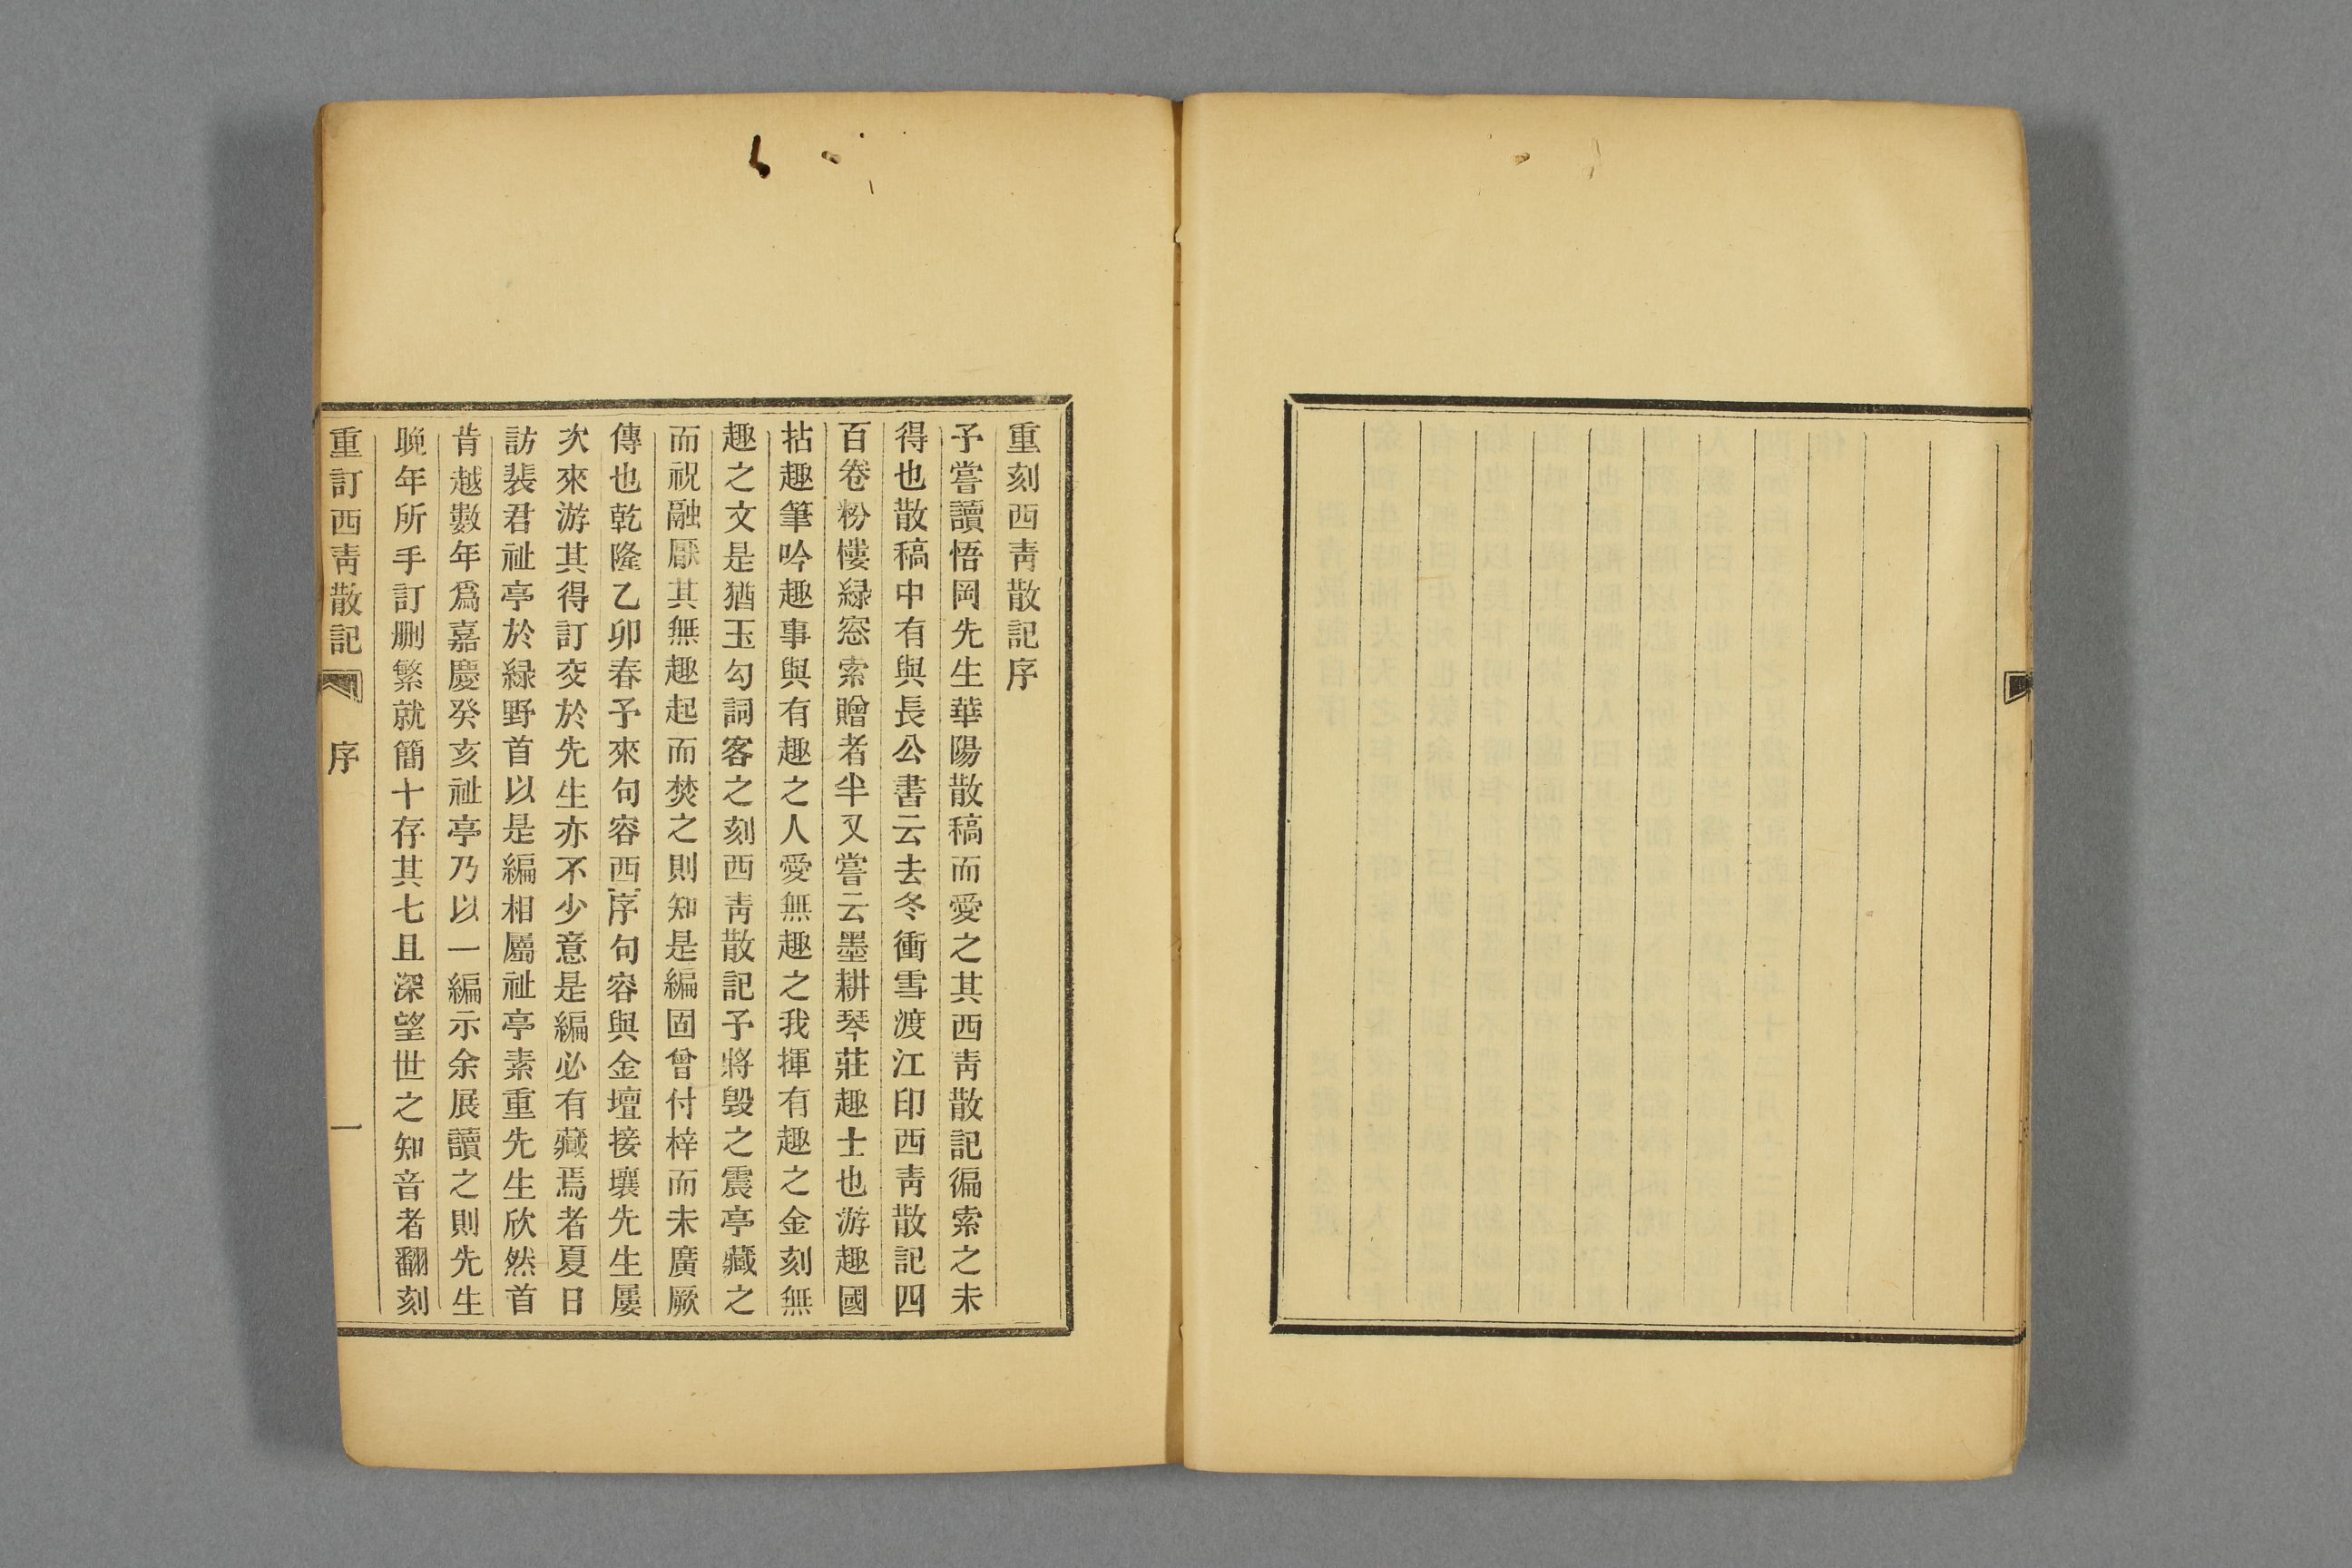 重刻西靑散記序
予嘗讀悟岡先生華陽散稿而愛之其西靑散記徧索之未
得也散稿中有與長公書云去冬衝雪渡江印西靑散記四
百卷粉樓綠窓索贈者半又嘗云墨耕琴莊趣士也游趣國
拈趣筆吟趣事與有趣之人愛無趣之我揮有趣之金刻無
趣之文是猶玉勾詞客之刻西靑散記予將毀之震亭藏之
而祝融厭其無趣起而焚之則知是編固曾付梓而未廣厥
傳也乾隆乙卯春予來句容西序句容與金壇接壤先生屢
次來游其得訂交於先生亦不少意是編必有藏焉者夏日
訪裴君祉亭於綠野首以是編相屬祉亭素重先生欣然首
肯越數年爲嘉慶癸亥祉亭乃以一編示余展讀之則先生
晚年所手訂删繁就簡十存其七且深望世之知音者翻刻
重訂西靑散記 序 一